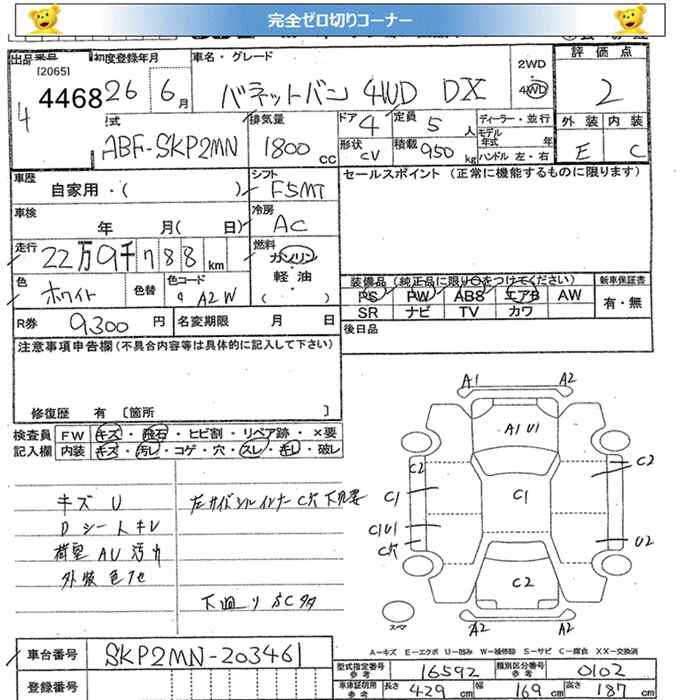 完全ゼロ切りコーナー
出品番号 [2065] 4 4468
初度登録年月 26 6月
車名・グレード バネットバン 4WD DX
2WD 4WD
評価点 2
外装 内装
E C
型式 ABF-SKP2MN
排気量 1800cc
ドア 4
定員 5人
ディーラー・並行
モデル年式 年式
形状 CV
積載 950kg
ハンドル 左・右
車歴 自家用・( )
シフト F5MT
セールスポイント (正常に機能するものに限ります)
車検 年 月(日)
冷房 AC
走行 22万9千788km
燃料 ガソリン・軽油 ( )
色 ホワイト
色替
色コード A2W
装備品 (純正品に限り○をつけてください)
新車保証書
PS PW ABS エアB AW
SR ナビ TV カワ
有・無
R券 9,300円
名変期限 月 日
後日品
注意事項申告欄 (不具合内容等は具体的に記入して下さい)
修復歴 有 〔箇所 〕
検査員記入欄
FW キズ・飛石・ヒビ割・リペア跡・×要
内装 キズ・汚レ・コゲ・穴・スレ・キレ・破レ
キズ U
D シートキレ
荷室 AU 汚れ
外装 色アセ
左サイドシルインナー C穴 下見要
下廻り SC多
A1 A2
A1 U1
C2 C2
C1 C1
C1U1
C穴 U2
C2
スペア
A2 A2
A-キズ E-エクボ U-凹み W-補修跡 S-サビ C-腐食 XX-交換済
車台番号 SKP2MN-203461
型式指定番号 参考 16592
類別区分番号 参考 0102
登録番号
車庫証明用 参考 長さ 429cm 幅 169cm 高さ 187cm